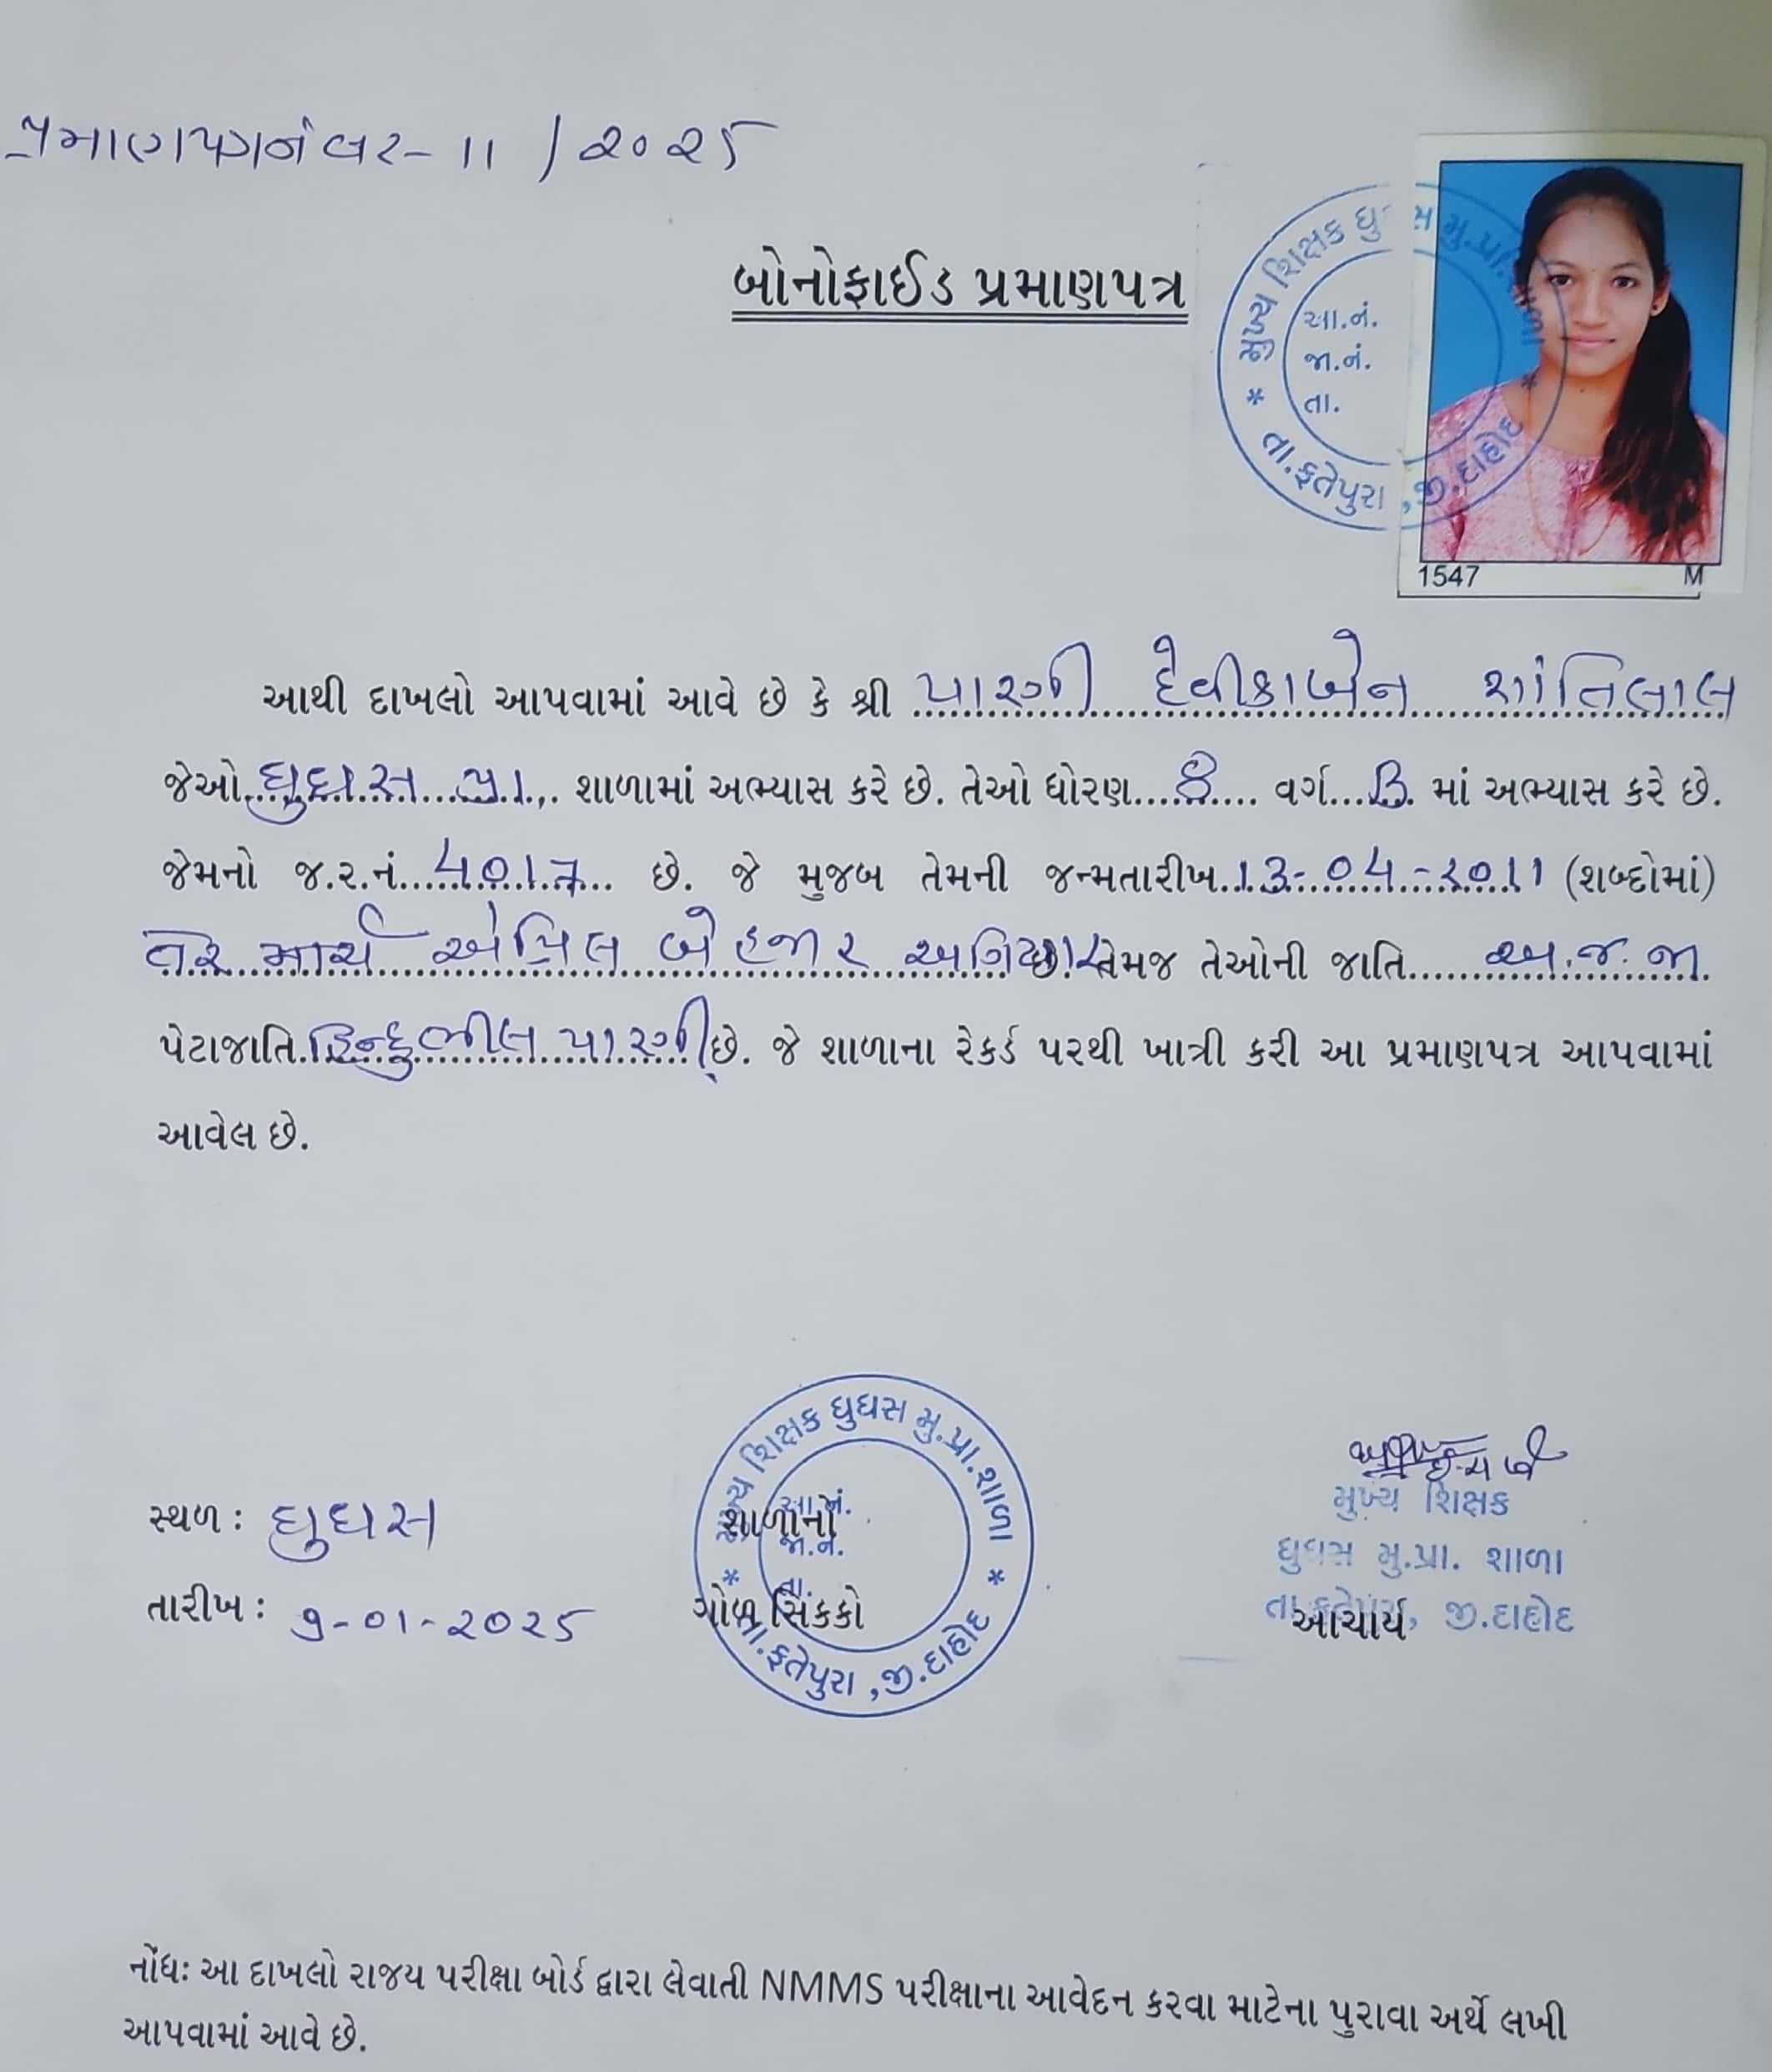 પ્રમાણપત્રનંબર- 11 / ૨૦૨૫
બોનોફાઈડ પ્રમાણપત્ર
મુખ્ય શિક્ષક ઘુ સ મુ.પ્રા. શાળા
આ.નં.
જા.નં.
તા.
* તા.ફતેપુરા ,જી.દાહોદ *
1547 M
આથી દાખલો આપવામાં આવે છે કે શ્રી પારગી દેવીકાબેન શાંતિલાલ
જેઓ ઘુઘસ પ્રા. શાળામાં અભ્યાસ કરે છે. તેઓ ધોરણ 8 વર્ગ B માં અભ્યાસ કરે છે.
જેમનો જ.ર.નં. 4017 છે. જે મુજબ તેમની જન્મતારીખ 13-04-2011 (શબ્દોમાં)
તેર માર્ચ એપ્રિલ બે હજાર અગિયાર છે તેમજ તેઓની જાતિ અ.જ.જા.
પેટાજાતિ હિન્દુ ભીલ પારગી છે. જે શાળાના રેકર્ડ પરથી ખાત્રી કરી આ પ્રમાણપત્ર આપવામાં
આવેલ છે.
મુખ્ય શિક્ષક ઘુઘસ મુ.પ્રા.શાળા
આ.નં.
જા.નં.
તા.
* તા.ફતેપુરા ,જી.દાહોદ *
મુખ્ય શિક્ષક
ઘુઘસ મુ.પ્રા. શાળા
તા.ફતેપુરા, જી.દાહોદ
સ્થળ : ઘુઘસ શાળાનો
તારીખ : ૭-૦૧-૨૦૨૫ ગોળ સિકકો આચાર્ય
નોંધઃ આ દાખલો રાજય પરીક્ષા બોર્ડ દ્વારા લેવાતી NMMS પરીક્ષાના આવેદન કરવા માટેના પુરાવા અર્થે લખી
આપવામાં આવે છે.